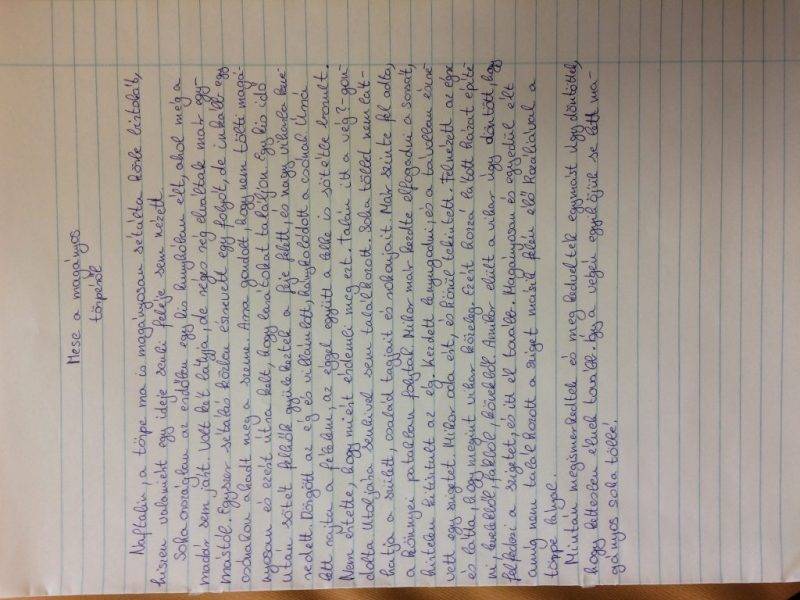 Mese a magányos
törpéről
Naftalin, a törpe ma is magányosan sétálta körbe birtokát,
hiszen valamiért egy ideje senki feléje sem nézett.
Sohaországban az erdőben egy kis kunyhóban élt, ahol még a
madár sem járt. Volt két bátyja, de réges rég elváltak már egy-
mástól. Egyszer sétálás közben észrevett egy folyót, de inkább egy
csónakon akadt meg a szeme. Arra gondolt, hogy nem tölti magá-
nyosan és ezért útra kelt, hogy barátokat találjon. Egy kis idő
után sötét felhők gyülekeztek a feje felett, és nagy viharba keve-
redett. Dörgött az ég és villámlott, hánykolódott a csónak. Úrrá
lett rajta a félelem, az éggel együtt a lelke is sötétbe borult.
Nem értette, hogy miért érdemli meg ezt. Talán itt a vég?-gon-
dolta. Utoljára senkivel sem találkozott. Soha többé nem lát-
hatja a szüleit, család tagjait és rokonjait. Már szinte fel adta,
a könnyei patakban folytak. Mikor már kezdte elfogadni a sorsát,
hirtelen kitisztult az ég. Kezdett lenyugodni, és a távolban észre-
vett egy szigetet. Mikor oda ért, és körül tekintett. Felnézett az égre
és látta, hogy megint vihar közeleg. Ezért hozzá látott házat építe-
ni, levelekből, fákból, kövekből. Amikor elült a vihar úgy döntött, hogy
felfedezi a szigetet, és itt él tovább. Magányosan és egyedül élt
amíg nem találkozott a sziget másik felén élő Rozáliával a
törpe lányal.
Miután megismerkedtek és meg kedvelték egymást úgy döntöttek,
hogy kettesben élnek tovább. Így a végén egyikőjük se lett ma-
gányos soha többé.